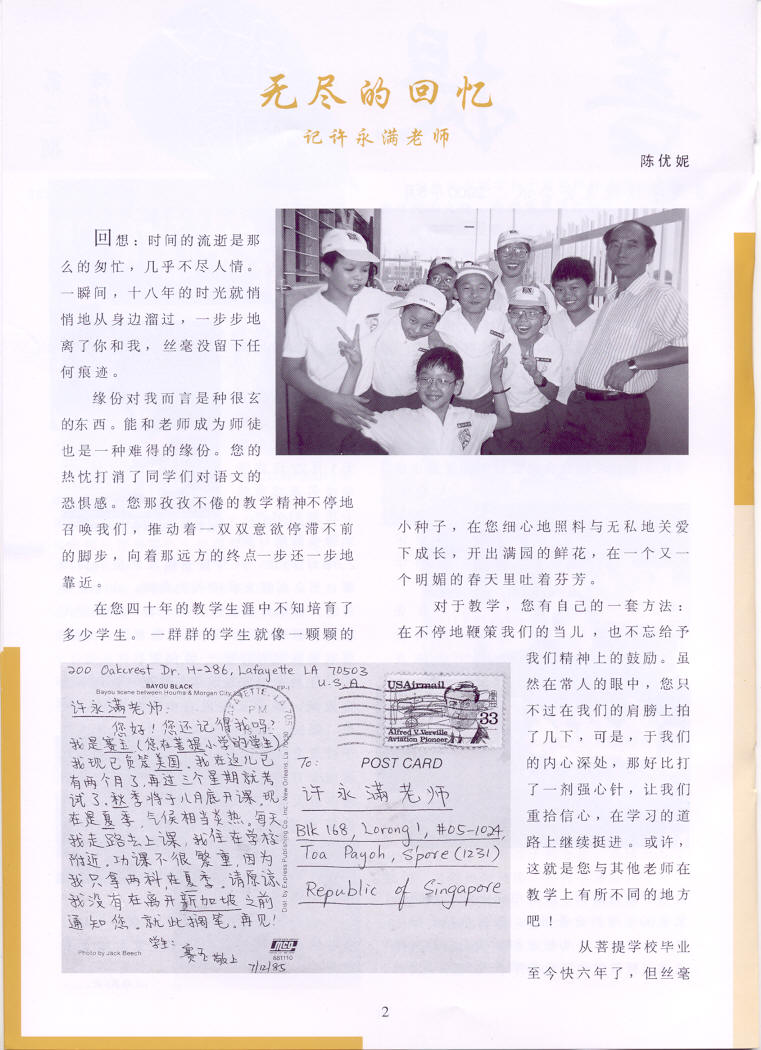 无尽的回忆
记许永满老师
陈优妮
回想：时间的流逝是那
么的匆忙，几乎不尽人情。
一瞬间，十八年的时光就悄
悄地从身边溜过，一步步地
离了你和我，丝毫没留下任
何痕迹。
缘份对我而言是种很玄
的东西。能和老师成为师徒
也是一种难得的缘份。您的
热忱打消了同学们对语文的
恐惧感。您那孜孜不倦的教学精神不停地
召唤我们，推动着一双双意欲停滞不前
的脚步，向着那远方的终点一步还一步地
靠近。
在您四十年的教学生涯中不知培育了
多少学生。一群群的学生就像一颗颗的
小种子，在您细心地照料与无私地关爱
下成长，开出满园的鲜花，在一个又一
个明媚的春天里吐着芬芳。
对于教学，您有自己的一套方法：
在不停地鞭策我们的当儿，也不忘给予
我们精神上的鼓励。虽
然在常人的眼中，您只
不过在我们的肩膀上拍
了几下，可是，于我们
的内心深处，那好比打
了一剂强心针，让我们
重拾信心，在学习的道
路上继续挺进。或许，
这就是您与其他老师在
教学上有所不同的地方
吧！
从菩提学校毕业
至今快六年了，但丝毫
200 Oakcrest Dr. H-286, Lafayette LA 70503
U.S.A.
BAYOU BLACK
Bayou scene between Houma & Morgan City
许永满老师：
您好！您还记得我吗？
我是赛玉（您在菩提小学的学生）
我现已负笈美国。我在这儿已
有两个月了，再过三个星期就考
试了。秋季将于八月底开课，现
在是夏季，气侯相当炎热。每天
我走路去上课，我住在学校
附近。功课不很繁重，因为
我只拿两科，在夏季。请原谅
我没有在离开新加坡之前
通知您。就此搁笔。再见！
学生：
赛玉敬上
7/12/85
Photo by Jack Beech
Dist. by Express Publishing Co. Inc. New Orleans, La.
MCO
681110
PM
USAirmail
33
Alfred V. Verville
Aviation Pioneer
To:
POST CARD
许永满老师
Blk 168, Lorong 1, #05-1024,
Toa Payoh, S'pore (1231)
Republic of Singapore
2